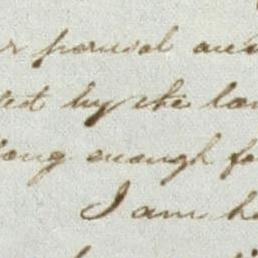 r perusal and
ted by the la
long enough fo
I am h